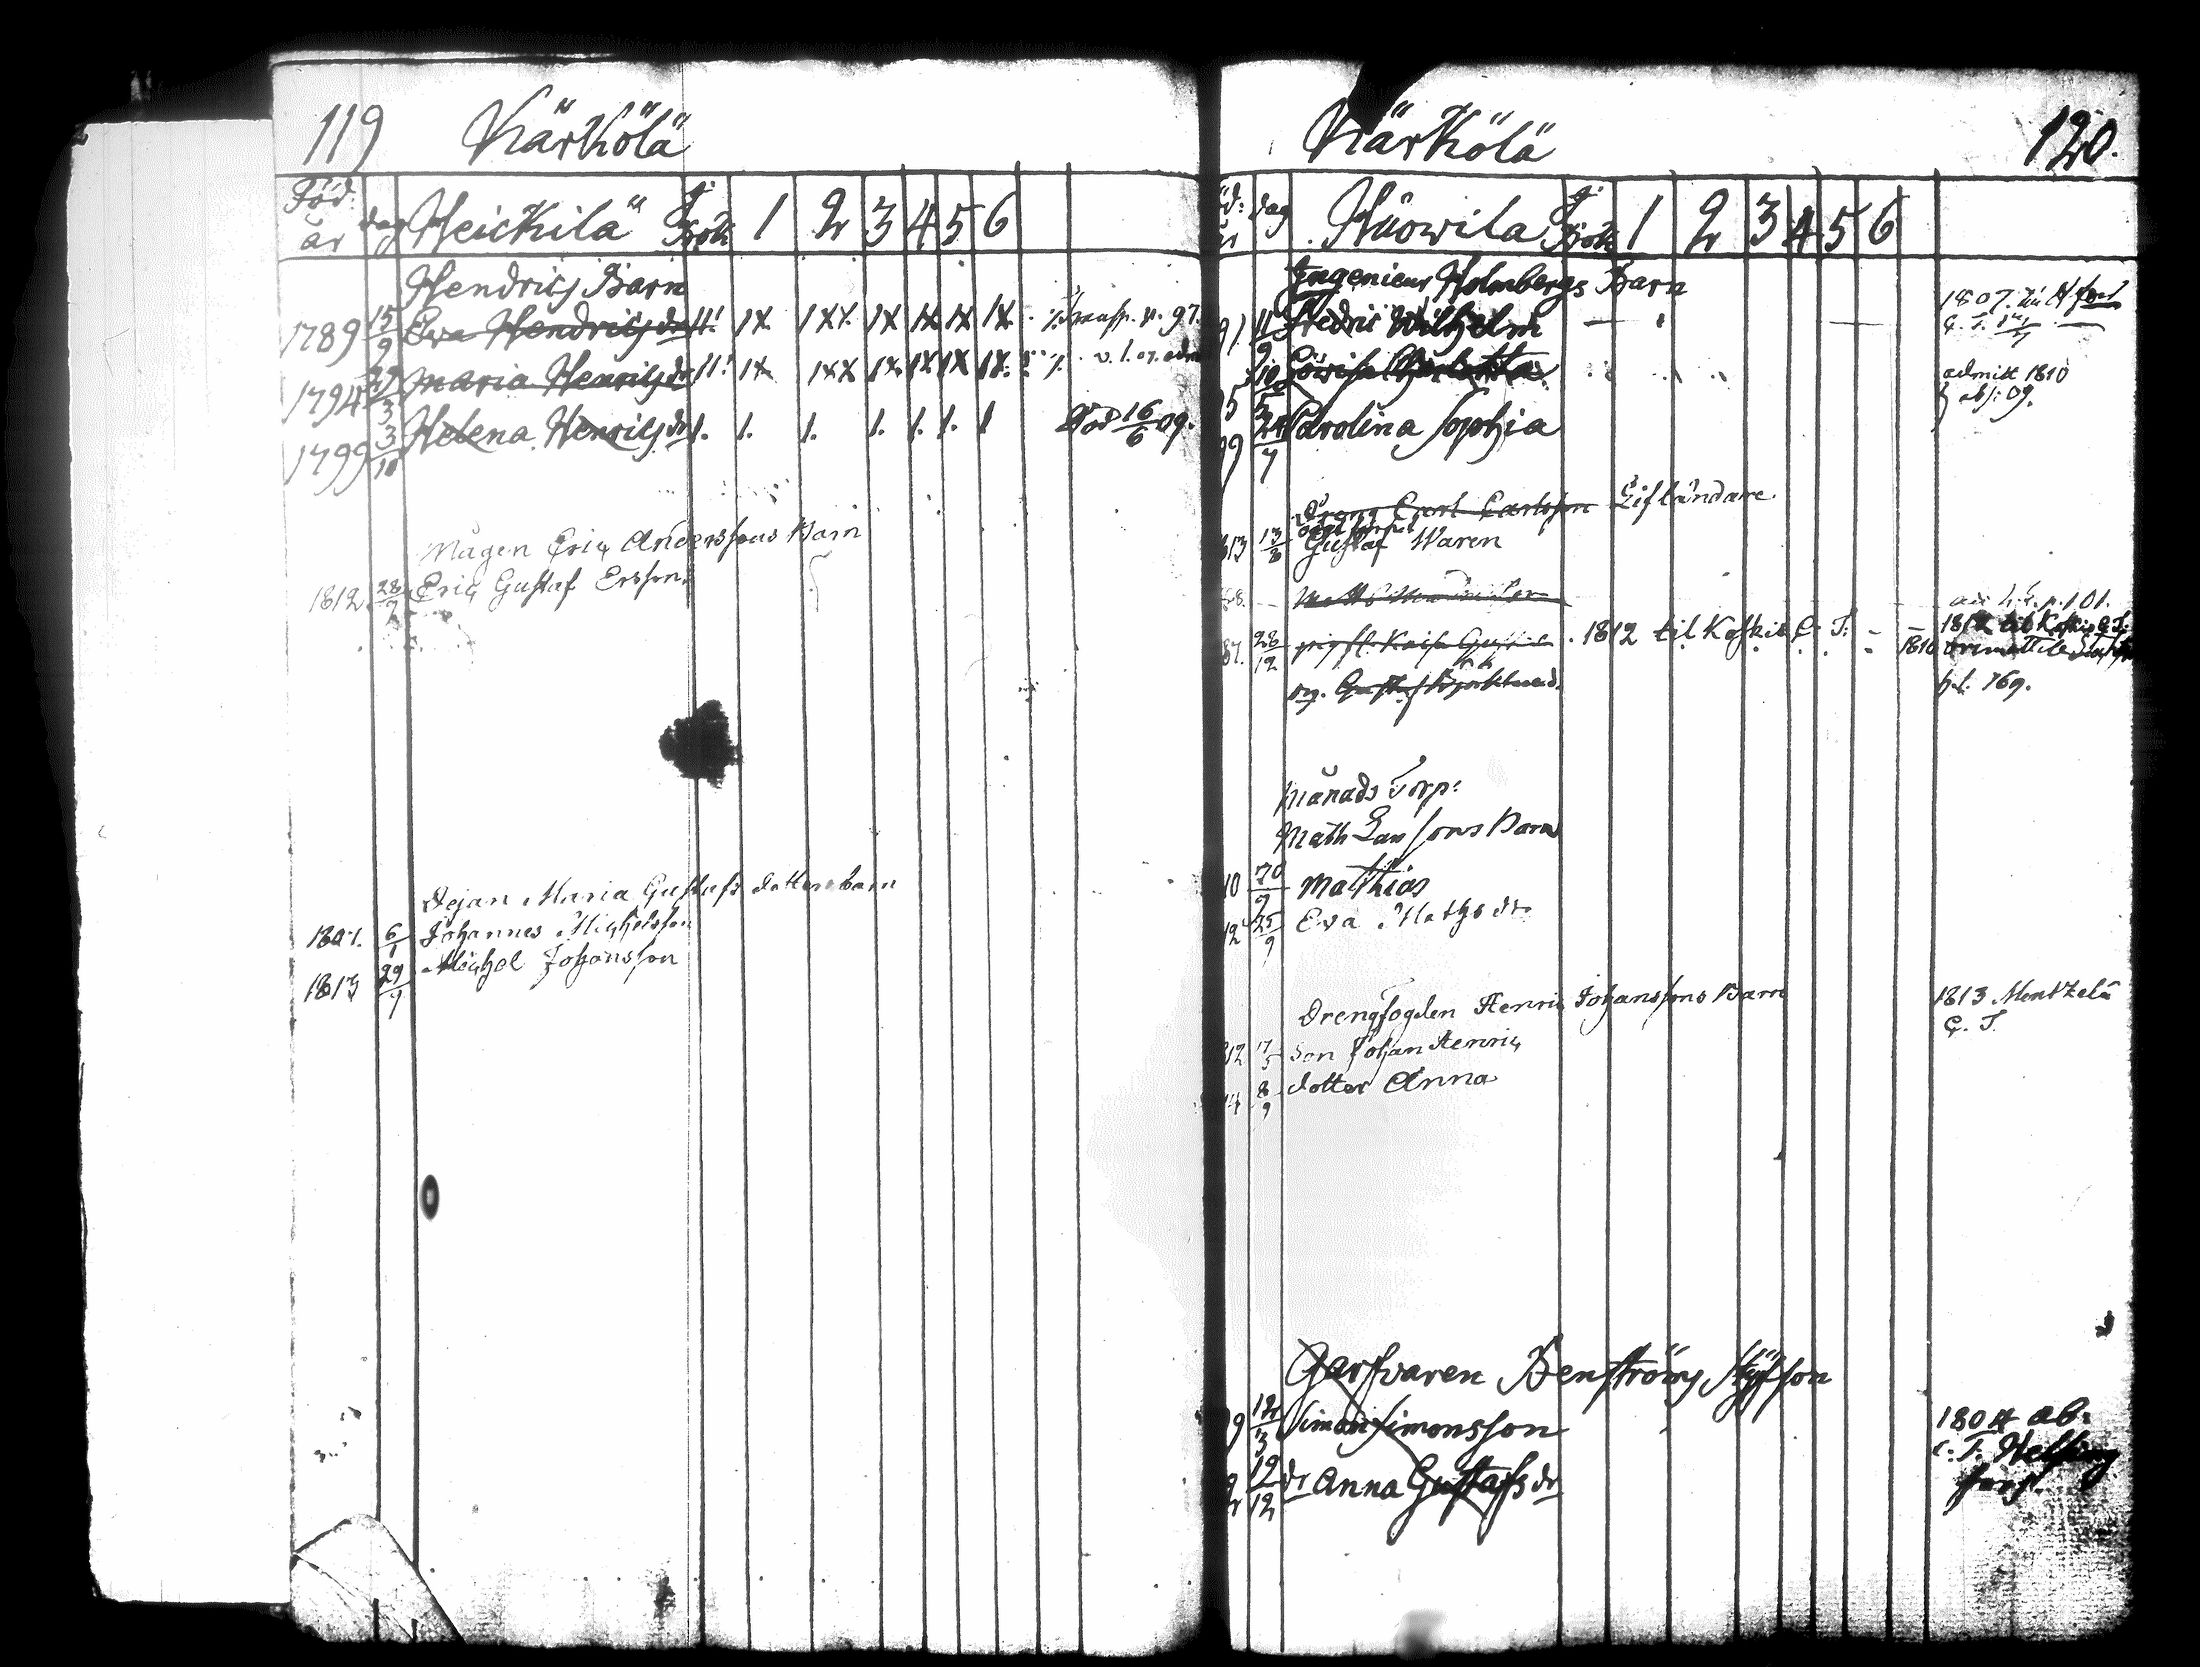 119 Kärkölä
Föd: år dag Heickilä 1 2 3 4 5 6
Hendrics Barn
1789 15/9 Eva Hendricsdr 11. 1X 1XX 1X 1X 1X 1X. Transp. p. 97.
1794 3 Maria Henricsdr 11. 1X 1XX 1X 1X 1X 1X.
1799 3/10 Helena Henricsdr 1. 1. 1. 1. 1. 1. 1 död 16/6 09.
Mågen Eric Anderssons Barn
1812 28/7 Eric Gustaf Ersson
Dejan Maria Gustafs dotters barn
1807. 6/1 Johannes Michelsson
1813 29/9 Michel Johansson
Kärkölä 120.
dag Huowila 1 2 3 4 5 6
Ingenieur Holmbergs Barn
91. 11/9 Fredric Wilhelm 1807.
5 10/5 Lowisa Charlotta admitt 1810
abs: 09.
99 24/7 Carolina Sophia
Dreng Carl Carlsson Lifländare
13 13/3 Gustaf Waren
88. p. 101.
87. 28/12 Kaisa 1812 til Koskis C. T. 1812 til Koskis C. T.
1810 Orimattila
Gustaf Björklund. 169.
Månads Torp:
Math Larssons Barn
10 20/9 Matthias
12 25/9 Eva Mathsdr
Drengfogden Henric Johanssons Barn 1813 Mentzelä
C. T.
12 17/5 Son Johan Henric
14 8/9 dotter Anna
Garfvaren Benströms Styfson
9 12/3 Simon Simonsson 1804 ab:
c. T. Helsing
fors.
2 12/12 dr Anna Gustafsdr